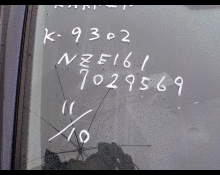 K-9302
NZE161
7029569
11/10